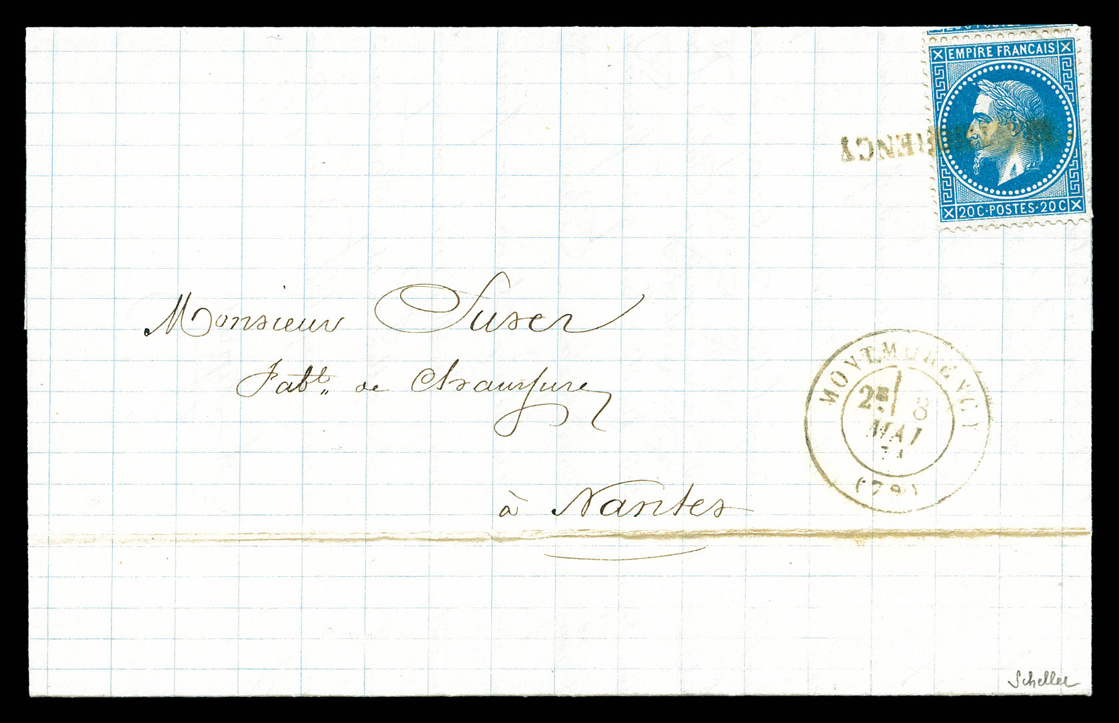 20 C · POSTES · 20 C
EMPIRE FRANCAIS
20 C · POSTES · 20 C
RENCY
Monsieur Suser
Fabt. de Chaussures
à Nantes
MONTMORENCY
2E 8
MAI
71
(72)
Scheller